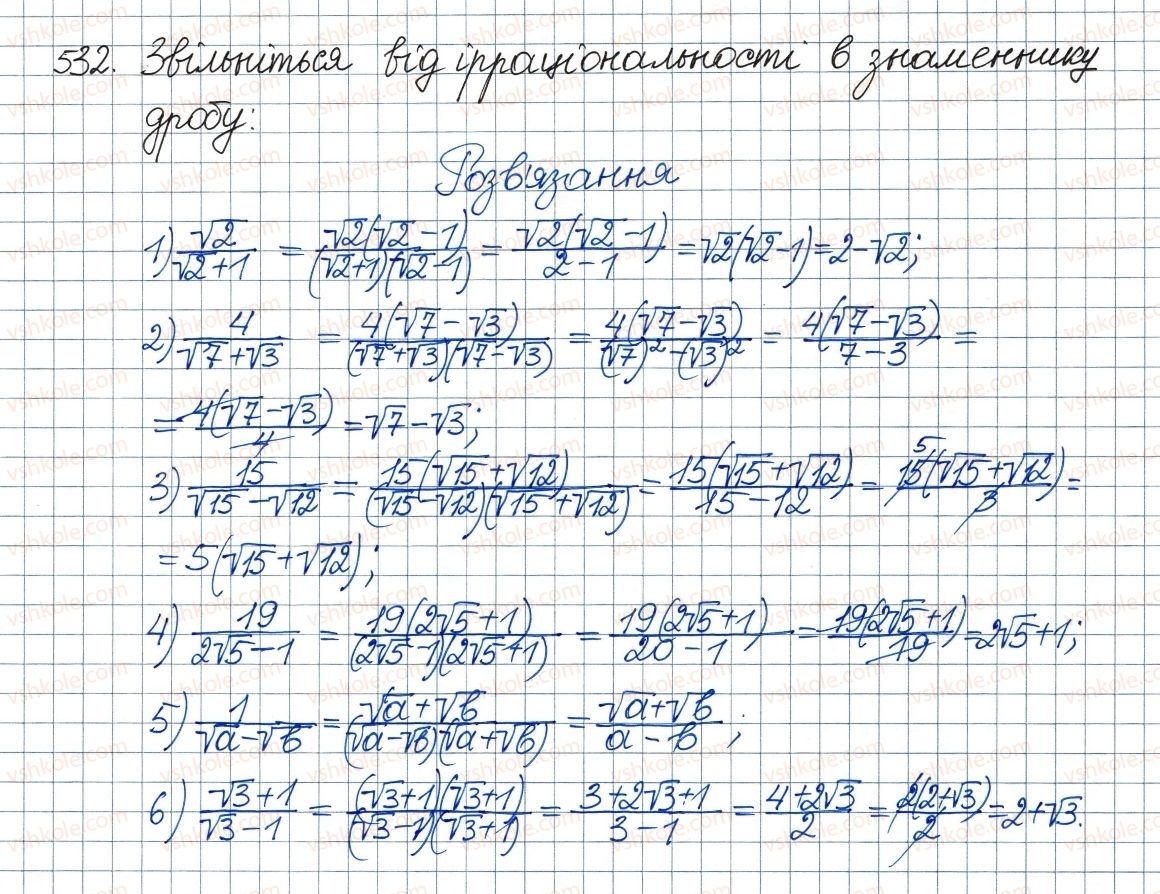 532. Звільніться від ірраціональності в знаменнику
дробу:
Розв'язання
1) √2/(√2+1) = √2(√2-1)/((√2+1)(√2-1)) = √2(√2-1)/(2-1) = √2(√2-1) = 2-√2;
2) 4/(√7+√3) = 4(√7-√3)/((√7+√3)(√7-√3)) = 4(√7-√3)/((√7)²-(√3)²) = 4(√7-√3)/(7-3) =
= 4(√7-√3)/4 = √7-√3;
3) 15/(√15-√12) = 15(√15+√12)/((√15-√12)(√15+√12)) = 15(√15+√12)/(15-12) = 15⁵(√15+√12)/3 =
= 5(√15+√12);
4) 19/(2√5-1) = 19(2√5+1)/((2√5-1)(2√5+1)) = 19(2√5+1)/(20-1) = 19(2√5+1)/19 = 2√5+1;
5) 1/(√a-√b) = (√a+√b)/((√a-√b)(√a+√b)) = (√a+√b)/(a-b);
6) (√3+1)/(√3-1) = (√3+1)(√3+1)/((√3-1)(√3+1)) = (3+2√3+1)/(3-1) = (4+2√3)/2 = 2(2+√3)/2 = 2+√3.